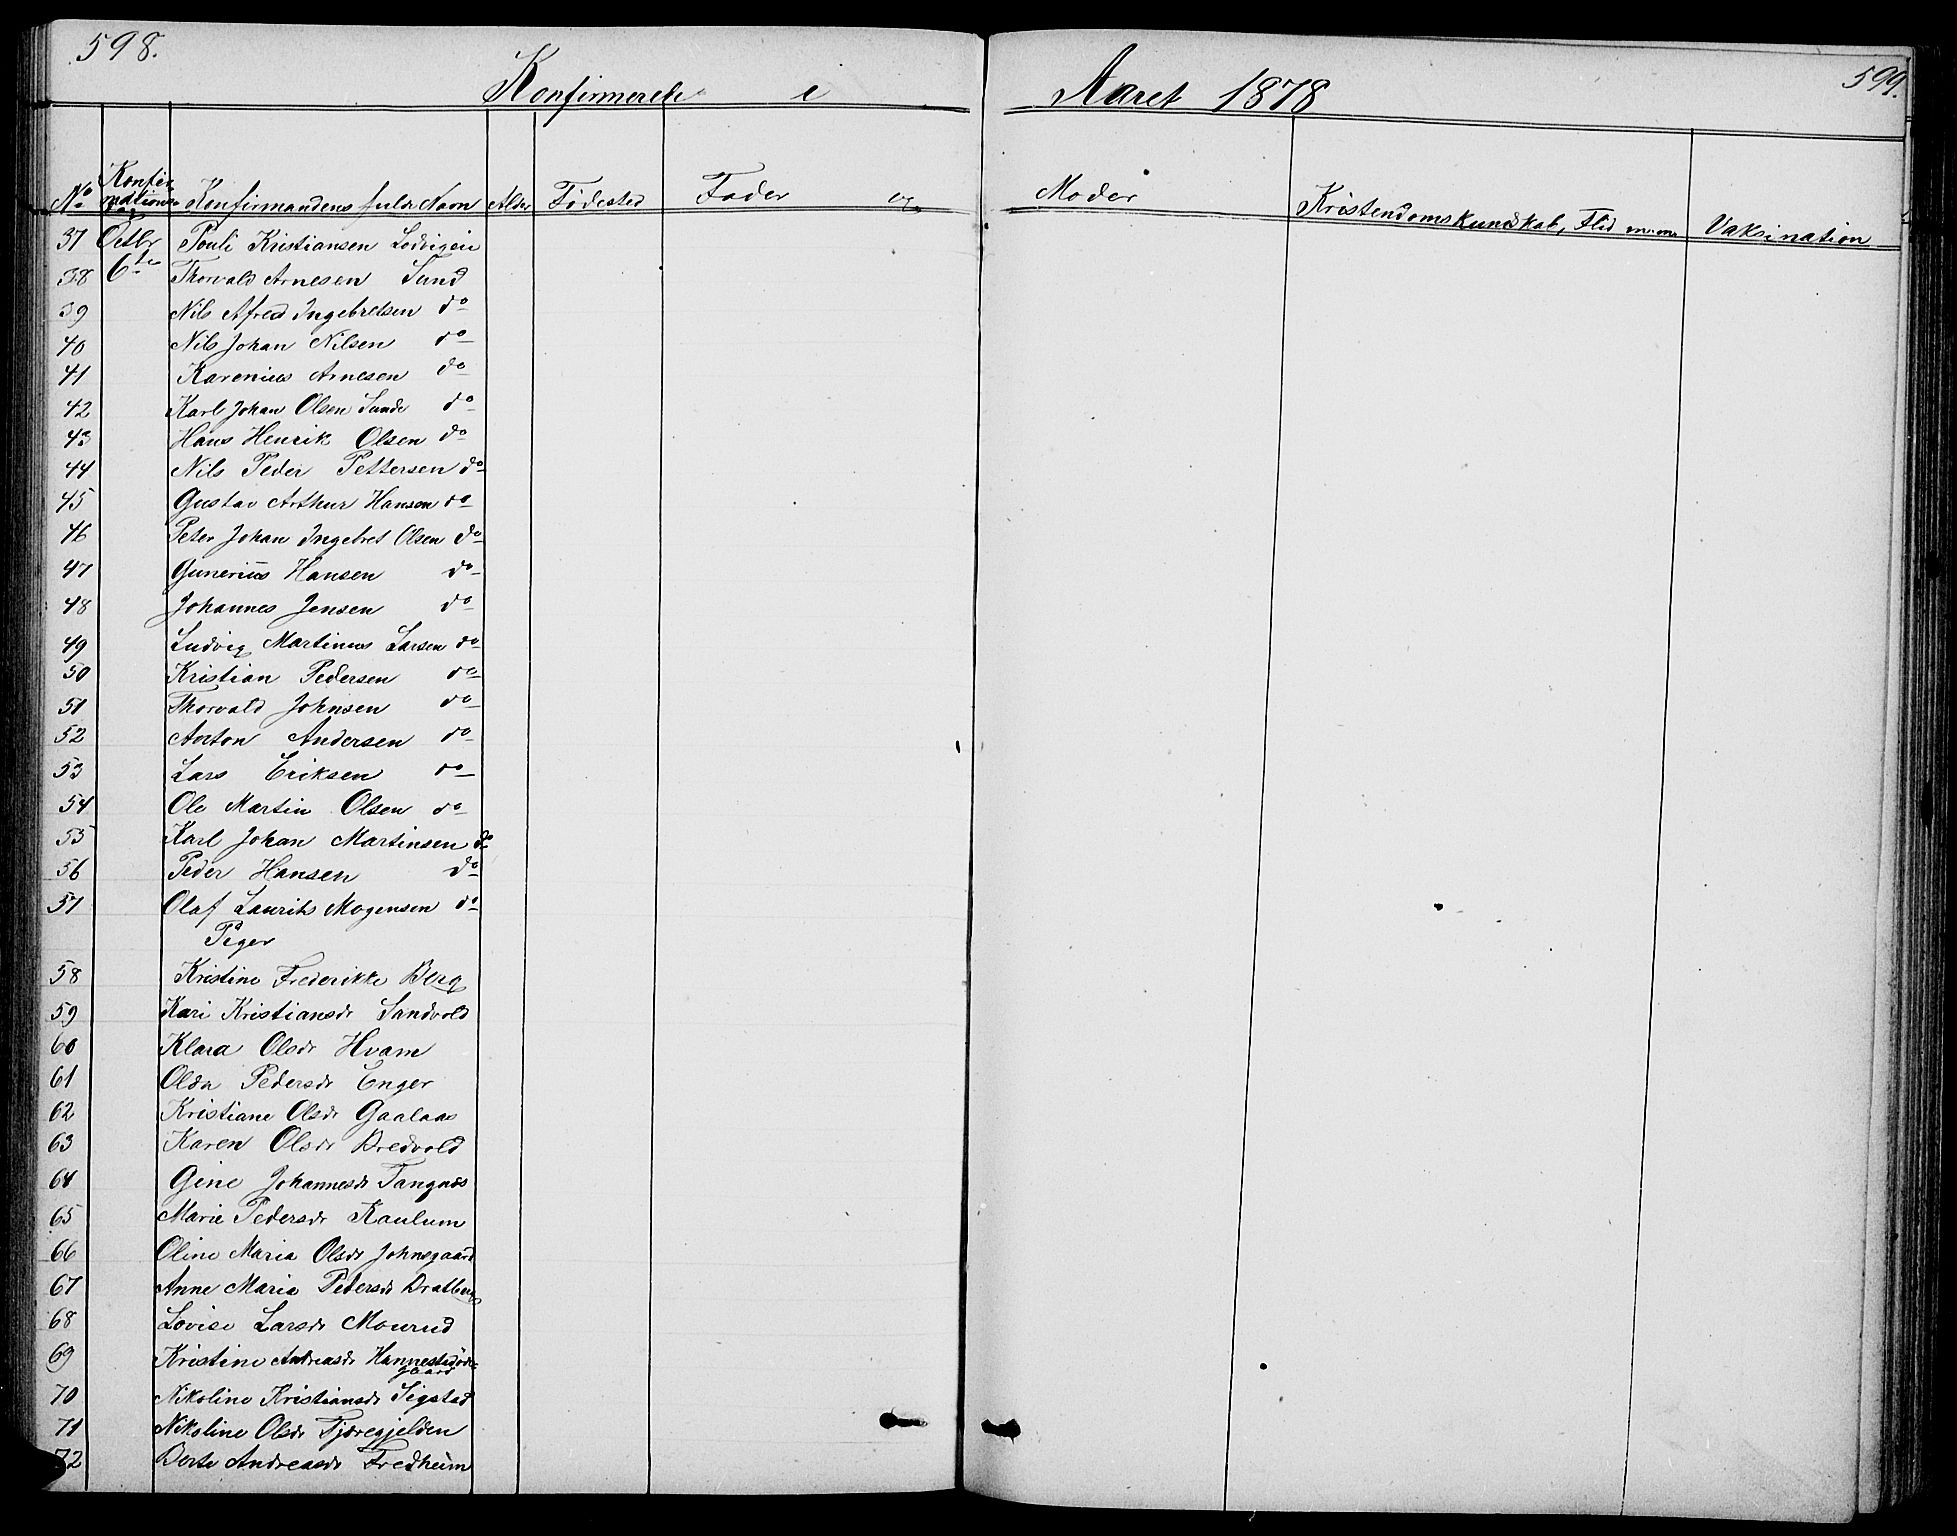 598.
599.
Konfirmerede i Aaret 1878
No
Konfir
mations
dag
Konfirmandens fulde Navn
Alder
Fødested
Fader og
Moder
Kristendomskundskab, Flid m. m.
Vaksination
37 Octbr Pouli Kristiansen Lodvigeie
38 6te Thorvald Arnesen Sund
39 Nils Afred Ingebretsen do
40 Nils Johan Nilsen do
41 Karenius Arnesen do
42 Karl Johan Olsen Sunde do
43 Hans Henrik Olsen do
44 Nils Peder Pettersen do
45 Gustav Arthur Hansen do
46 Peter Johan Ingebret Olsen do
47 Gunerius Hansen do
48 Johannes Jensen do
49 Ludvig Martinus Larsen do
50 Kristian Pedersen do
51 Thorvald Johnsen do
52 Anton Andersen do
53 Lars Eriksen do
54 Ole Martin Olsen do
55 Karl Johan Martinsen do
56 Peder Hansen do
57 Olaf Laurits Mogensen do
Piger
58 Kristine Frederikke Berg
59 Kari Kristiansdr Sandvold
60 Klara Olsdr Hvam
61 Olea Pedersdr Enger
62 Kristiane Olsdr Gaalaas
63 Karen Olsdr Bredvold
64 Gine Johannesdr Tangnæs
65 Marie Pedersdr Kaulum
66 Oline Maria Olsdr Johnsgaard
67 Anne Maria Pedersdr Bratberg
68 Lovise Larsdr Mourud
69 Kristine Andreasdr Hannestadøde
gaard
70 Nikoline Kristiansdr Sigstad
71 Nikoline Olsdr Fjæregjelden
72 Berte Andreasdr Fredheim